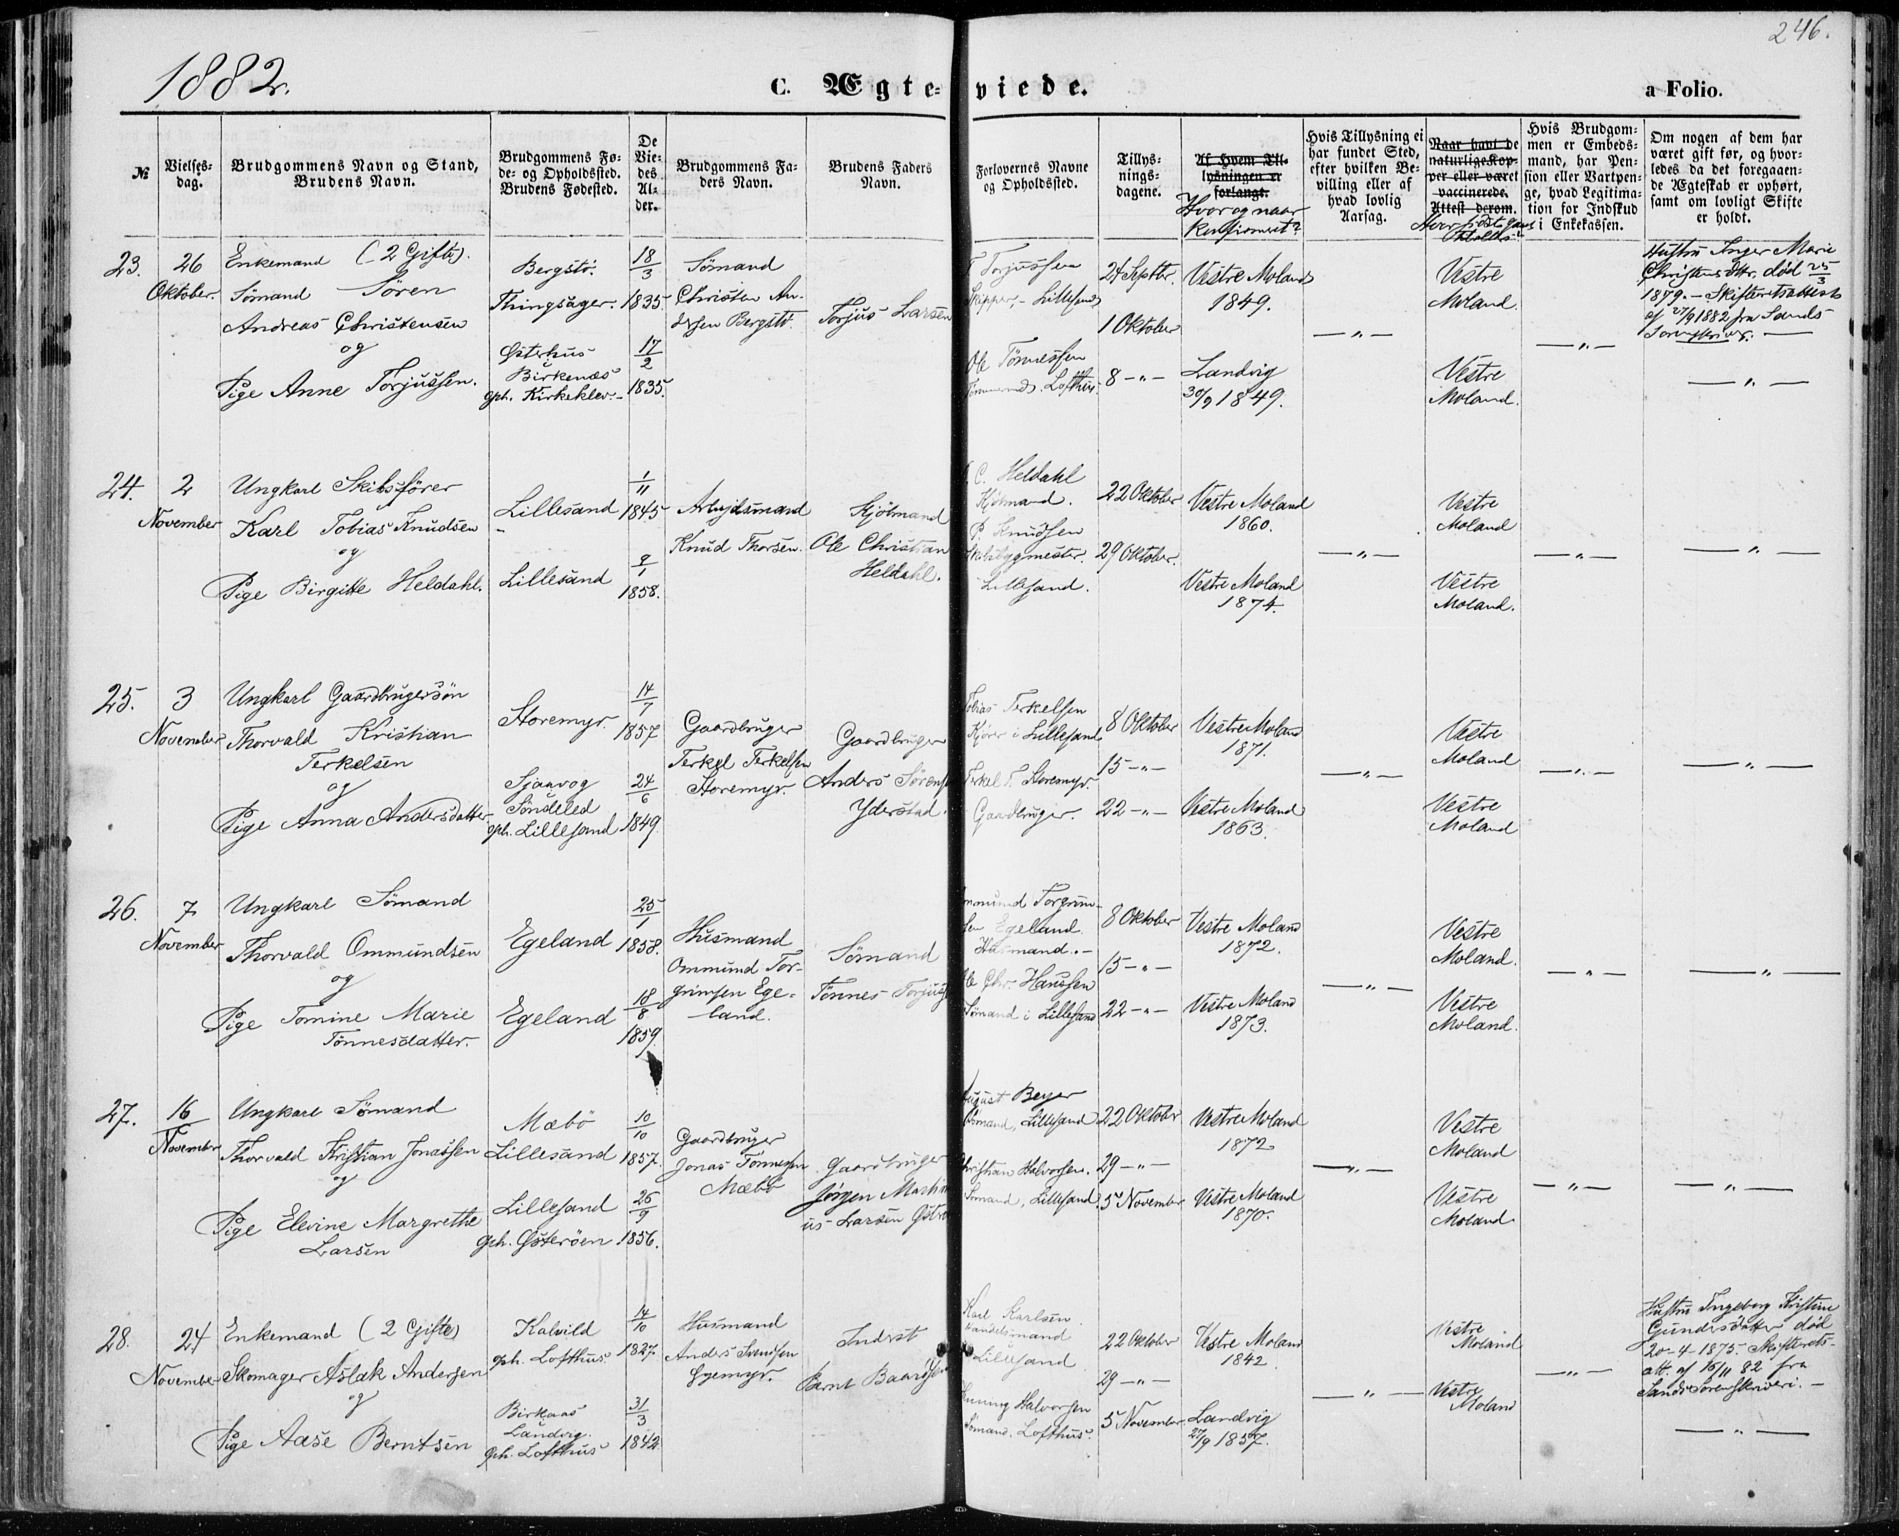 246.
1882.
C. Ægteviede.
a Folio.
№
Vielses-
dag.
Brudgommens Navn og Stand,
Brudens Navn.
Brudgommens Fø-
de- og Opholdssted.
Brudens Fødested.
De
Vie-
des
Al-
der.
Brudgommens Fa-
ders Navn.
Brudens Faders
Navn.
Forlovernes Navne
og Opholdssted.
Tillys-
nings-
dagene.
Af hvem Til-
lysningen er
forlangt.
Hvor og naar
Konfirmeret?
Hvis Tillysning ei
har fundet Sted,
efter hvilken Be-
villing eller af
hvad lovlig
Aarsag.
Naar havt de
naturlige Kop-
per eller været
vaccinerede.
Attest derom.
Hvis Brudgom-
men er Embeds-
mand, har Pen-
sion eller Vartpen-
ge, hvad Legitima-
tion for Indskud
i Enkekassen.
Om nogen af dem har
været gift før, og hvor-
ledes da det foregaaen-
de Ægteskab er ophørt,
samt om lovligt Skifte
er holdt.
23.
26
Oktober.
Enkemand (2 Gifte).
Sømand Sören
Andreas Christensen
og
Pige Anne Torjussen.
Bergstö.
Thingsager.
Østerhus
i
Birkenæs
oph. Kirkeklev.
18/3
1835.
17/2
1835.
Sömand
Christen An-
dersen Bergstö.
Torjus Larsen
T. Torjussen
Skipper, Lillesand
Ole Tönnessen
Tømmermd, Lofthus.
24 Septbr.
1 Oktober
8 -"-
Vestre Moland
1849.
Landvig
30/9 1849.
-"-
Vestre
Moland.
Vestre
Moland.
-"-
Hustru Inger Marie
Christensdttr. død 25/3
1879. - Skifteretsattest
af 27/9 1882 fra Sands
Sorenskriver.
-"-
24.
2
November
Ungkarl Skibsfører
Karl Tobias Knudsen
og
Pige Birgitte Heldahl.
Lillesand
-
Lillesand
1/11
1845
9/1
1858.
Arbeidsmand
Knud Thorsen.
Kjölmand
Ole Christian
Heldahl.
O. C. Heldahl
Kjölmand.
P. Knudsen
Skibsbygmester.
Lillesand.
22 Oktober
29 Oktober.
Vestre Moland
1860.
Vestre Moland
1874.
-"-
Vestre
Moland
Vestre
Moland.
-"-
-"-
25.
3
November
Ungkarl Gaardbrugersøn
Thorvald Kristian
Terkelsen
og
Pige Anna Andersdatter
Storemyr.
Sjaavog
Söndeled
oph. Lillesand
14/7
1857
24/6
1849.
Gaardbruger
Terkel Terkelsen
Storemyr.
Gaardbruger
Anders Sörens
Yderstad.
Tobias Terkelsen
Kjører i Lillesand
Terkel T. Storemyr.
Gaardbruger.
8 Oktober
15 -"-
22 -"-
Vestre Moland
1871.
Vestre Moland
1863.
-"-
Vestre
Moland
Vestre
Moland
-"-
-"-
26.
7
November
Ungkarl Sömand
Thorvald Ommundsen
og
Pige Tomine Marie
Tönnesdatter.
Egeland
Egeland
25/1
1858.
18/8
1859.
Husmand
Ommund Tor-
grimsen Ege-
land.
Sömand
Tönnes Torjuss
Ommund Torgrim-
sen Egeland.
Husmand.
Ole Chr. Hansen
Sömand i Lillesand
8 Oktober
15 -"-
22 -"-
Vestre Moland
1872.
Vestre Moland
1873.
-"-
Vestre
Moland.
Vestre
Moland.
-"-
-"-
27.
16
November
Ungkarl Sömand
Thorvald Kristian Jonassen
og
Pige Elevine Margrethe
Larsen
Mæbö
Lillesand
Lillesand
oph. Østeröen
10/10
1857.
26/9
1856.
Gaardbruger
Jonas Tönnesen
Mæbö
Gaardbruger
Jörgen Martin
us Larsen Øströ
August Beyer
Sömand, Lillesand
Christian Halvorsen.
Sömand, Lillesand.
22 Oktober
29 -"-
5 November
Vestre Moland
1872
Vestre Moland
1870.
-"-
Vestre
Moland
Vestre
Moland
-"-
-"-
28.
24
November
Enkemand (2 Gifte)
Skomager Aslak Andersen
og
Pige Aase Berntsen
Kalvild
oph. Lofthus
Birkaas
Landvig.
oph. Lofthus
14/10
1827.
31/3
1842
Husmand
Anders Svendsen
Inderst
Bernt Baardsen
Karl Karlsen
Handelsmand
Lillesand
Halvorsen
Sömand. Lofthus.
22 Oktober
29 -"-
5 November
Vestre Moland
1842.
Landvig
27/9 1857.
-"-
Vestre
Moland
Vestre
Moland
-"-
Hustru Ingeborg Kristine
Gundersdatter død
20-4-1875. Skifterets-
att. af 16/11 82 fra
Sands Sorenskriveri.
-"-